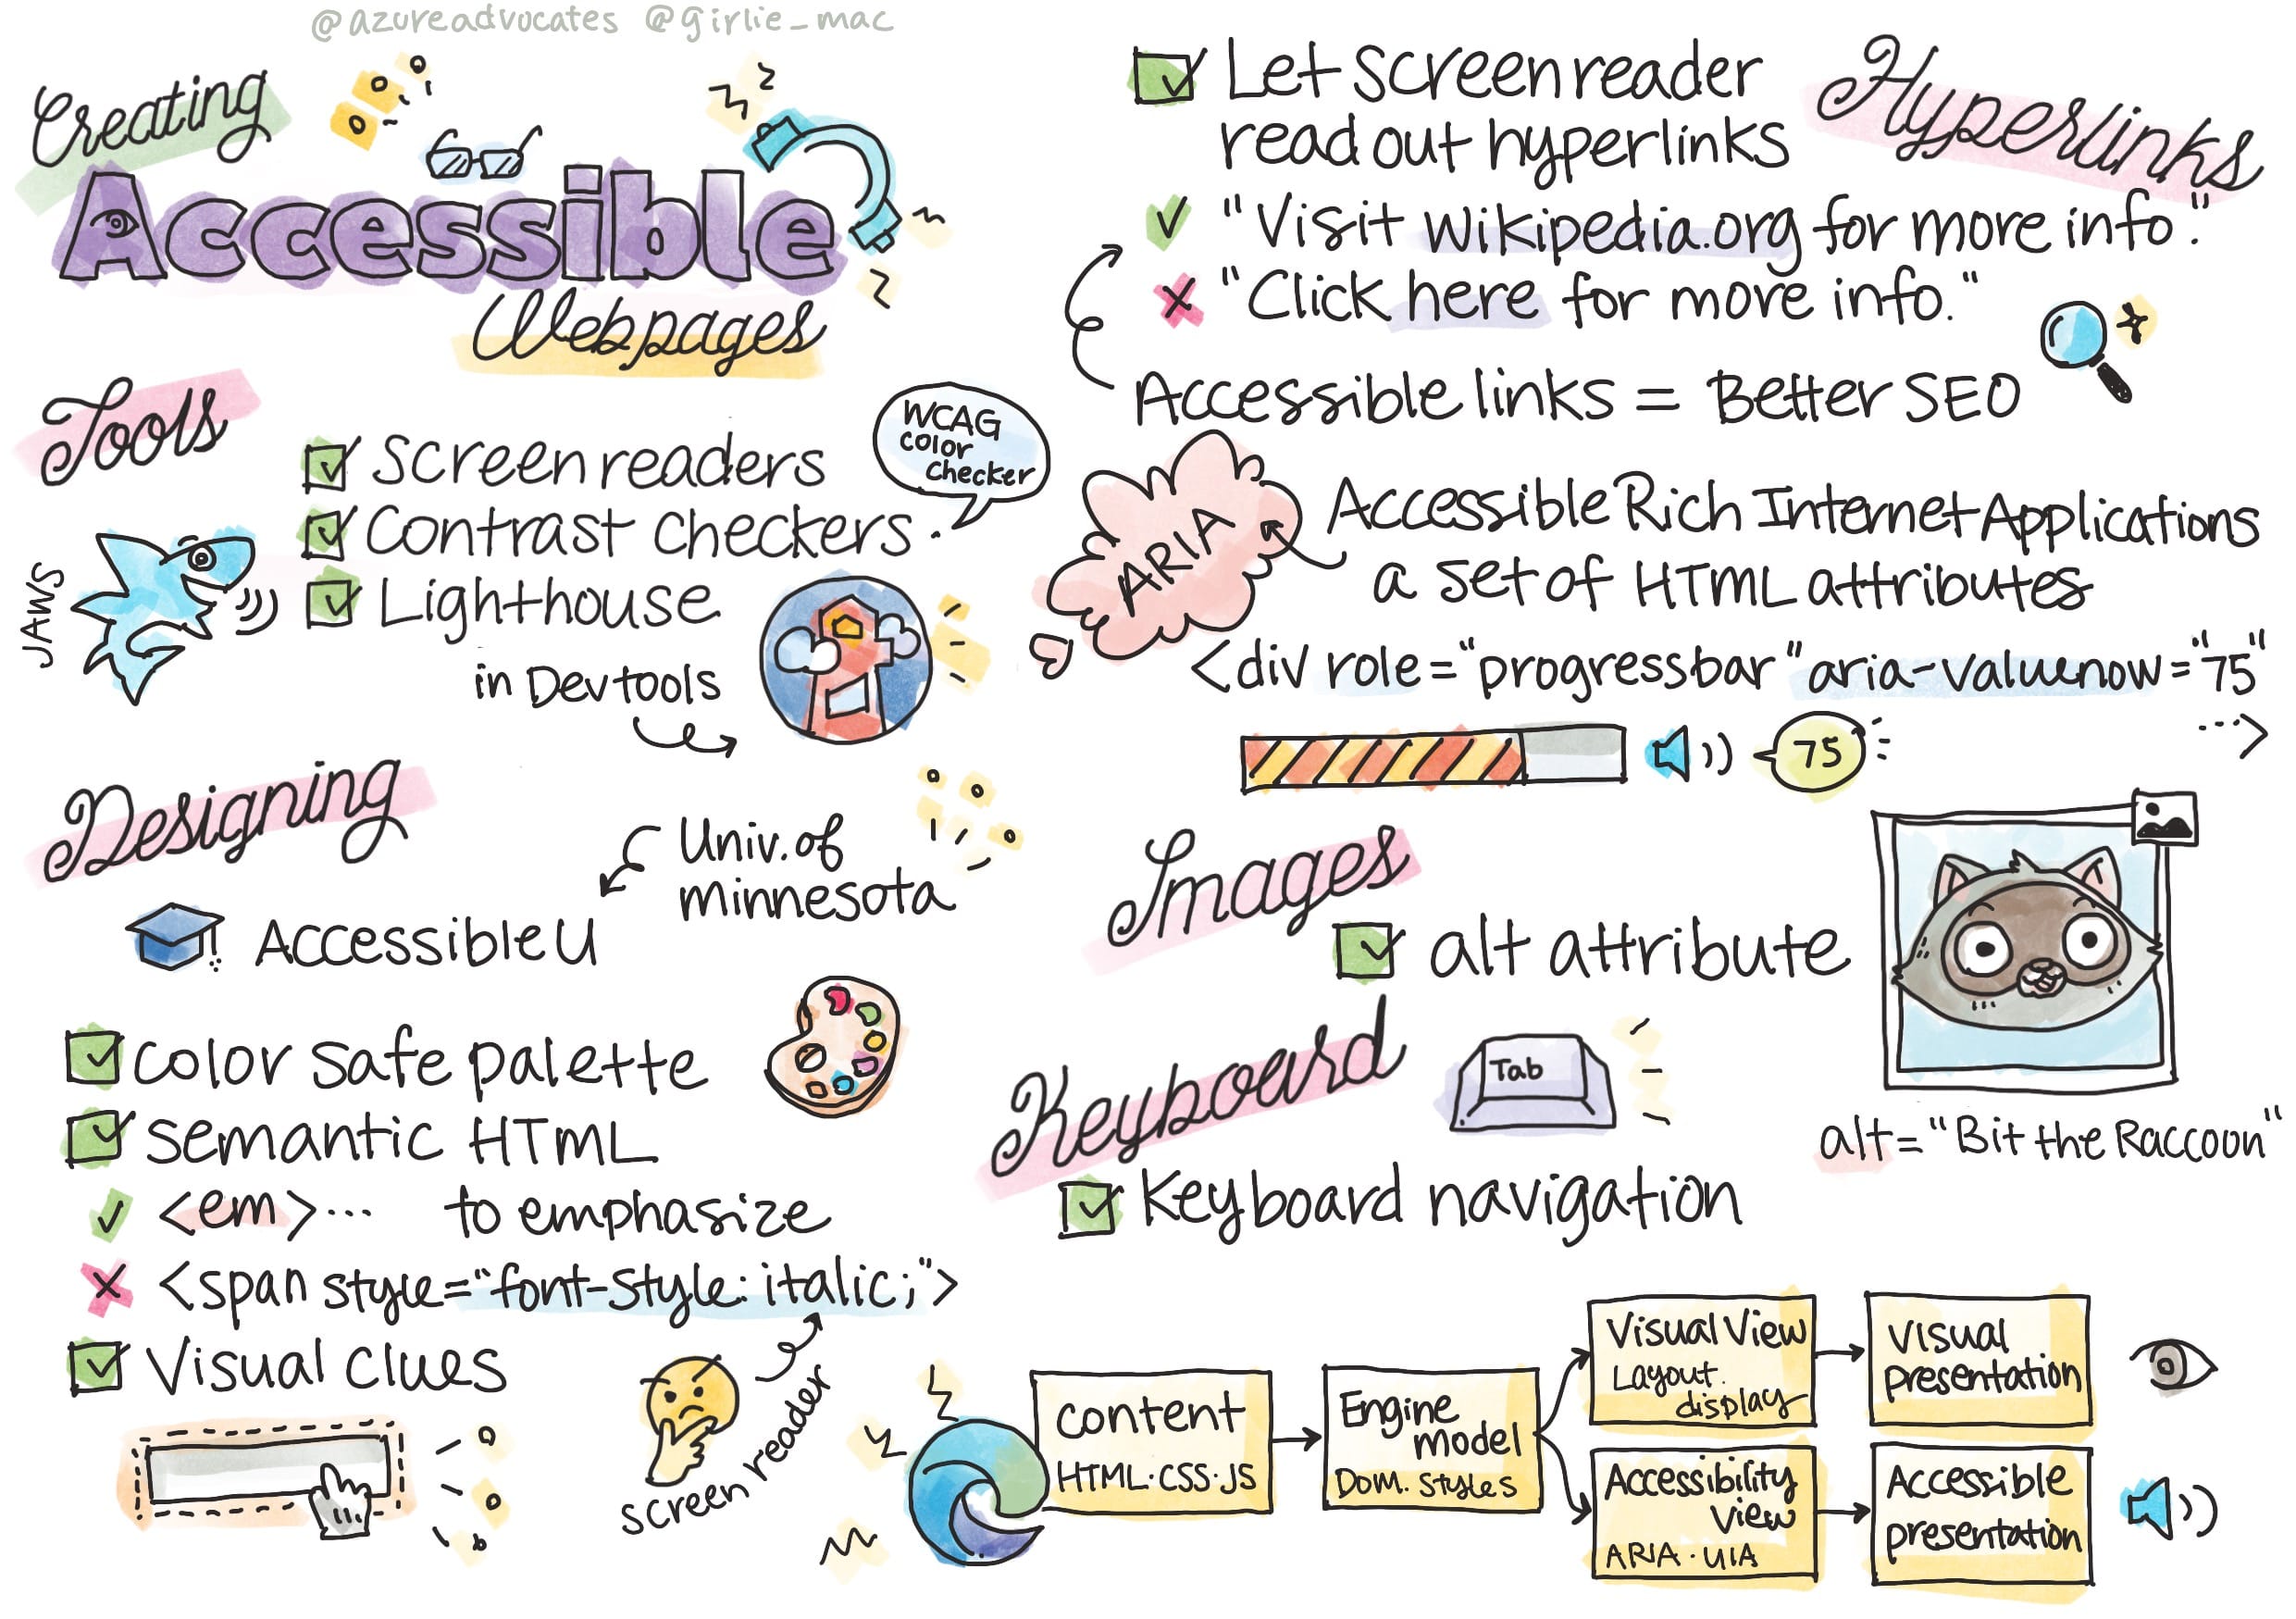 @azureadvocates @girlie_mac
Creating
Accessible
Webpages
Tools
screen readers
contrast checkers
WCAG
color
checker
Lighthouse
in Devtools
JAWS
Designing
Univ. of
Minnesota
AccessibleU
color safe palette
semantic HTML
<em>... to emphasize
<span style="font-style: italic;">
Visual clues
screen reader
Hyperlinks
Let screen reader
read out hyperlinks
"Visit wikipedia.org for more info."
"Click here for more info."
Accessible links = Better SEO
ARIA
Accessible Rich Internet Applications
a set of HTML attributes
<div role="progressbar" aria-valuenow="75"
...>
75
Images
alt attribute
alt="Bit the Raccoon"
Keyboard
Tab
Keyboard navigation
content
HTML·CSS·JS
Engine
model
DOM. Styles
Visual View
Layout.
display
Visual
presentation
Accessibility
view
ARIA·UIA
Accessible
presentation